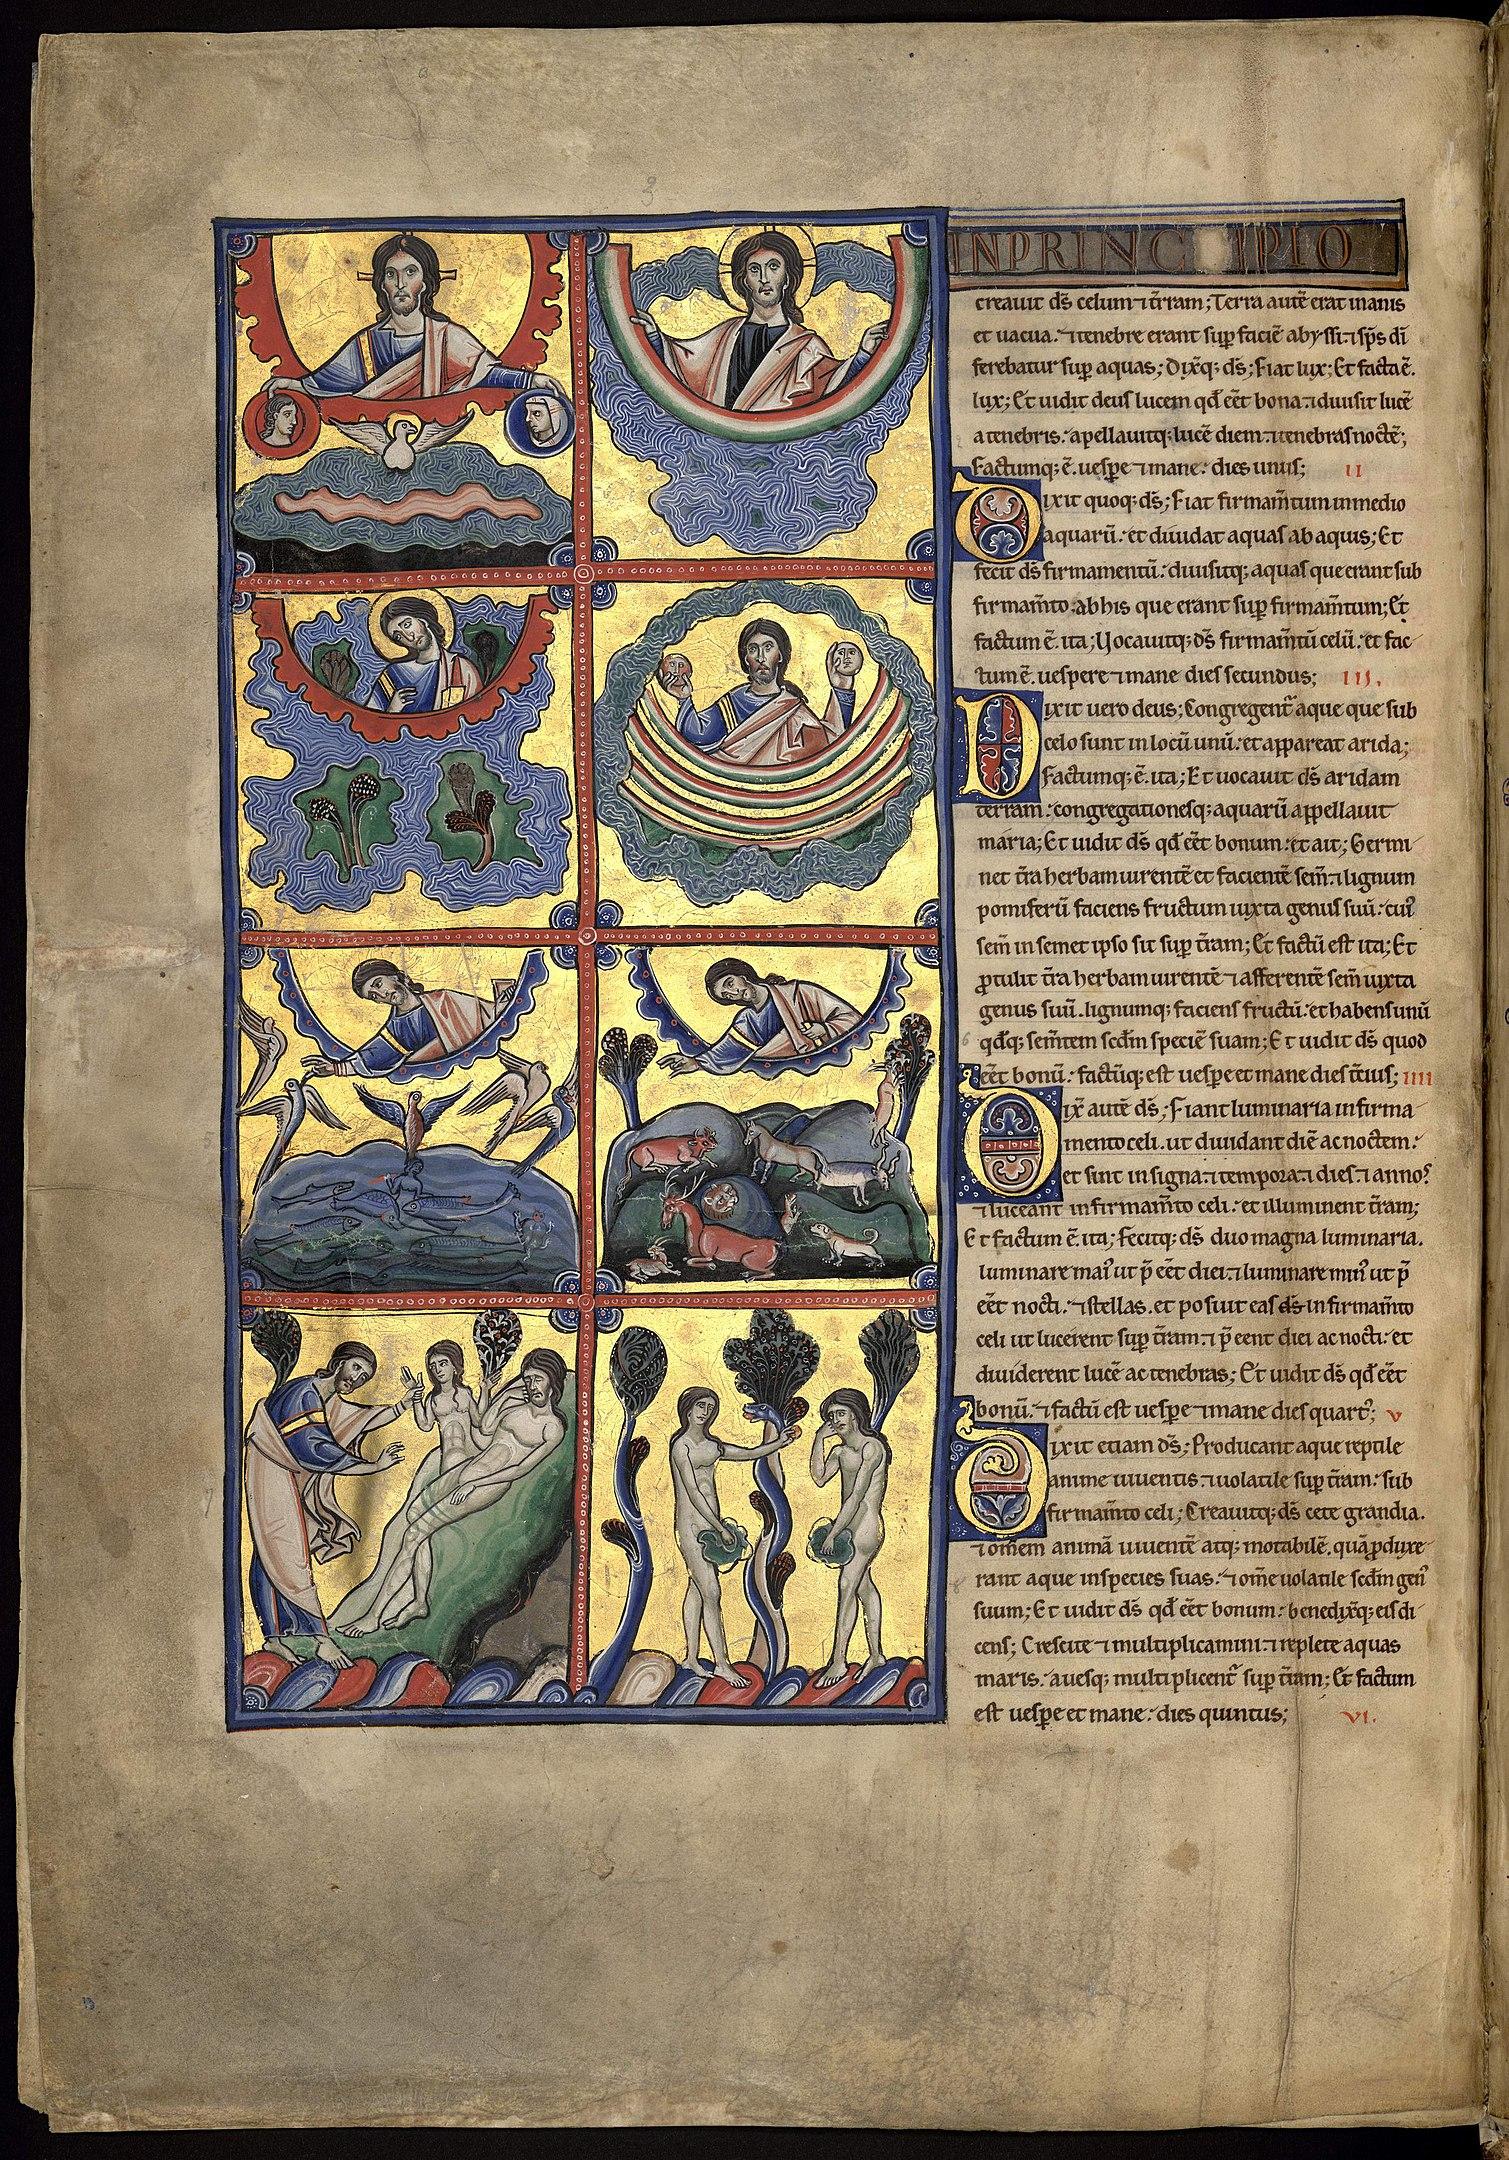 INPRINCIPIO
creauit ds̄ celum ⁊ t̄rram; Terra autē erat inanis
et uacua. ⁊ tenebre erant sup̱ faciē abyssi: ⁊ sp̄s dī
ferebatur sup̱ aquas; Dix̄q; ds̄; Fiat lux; Et facta ē.
lux; Et uidit deus lucem qd̄ eēt bona: ⁊ diuisit lucē
a tenebris. apellauitq; lucē diem: ⁊ tenebras noctē;
Factumq; ē. uesp̱e ⁊ mane. dies unus; II
Dixit quoq; ds̄; Fiat firmam̄tum in medio
aquarū. et diuidat aquas ab aquis; Et
fecit ds̄ firmamentū. diuisitq; aquas que erant sub
firmam̄to. ab his que erant sup̱ firmam̄tum; Et
factum ē. ita; Uocauitq; ds̄ firmam̄tū celū. et fac
tum ē. uespere ⁊ mane dies secundus; III.
Dixit uero deus; Congregent᷑ aque que sub
celo sunt in locū unū: et appareat arida;
Factumq; ē. ita; Et uocauit ds̄ aridam
terram. congregationesq; aquarū appellauit
maria; Et uidit ds̄ qd̄ eēt bonum. et ait; Germi
net t̄ra herbam uirentē et facientē sem̄. ⁊ lignum
pomiferū faciens fructum iuxta genus suū. cui᷒
sem̄ in semet ipso sit sup̱ t̄ram; Et factū est ita; Et
ꝓtulit t̄ra herbam uirentē ⁊ afferentē sem̄ iuxta
genus suū. lignumq; faciens fructū. et habens unū
qd̄q; sem̄tem scd̄m speciē suam; Et uidit ds̄ quod
eēt bonū. factūq; est uesp̱e et mane dies t̄cius; IIII
Dix̄ autē ds̄; Fiant luminaria in firma
mento celi. ut diuidant diē ac noctem.
et sint in signa ⁊ tempora ⁊ dies ⁊ annos
⁊ luceant in firmam̄to celi. et illuminent t̄ram;
Et factum ē. ita; Fecitq; ds̄ duo magna luminaria.
luminare mai᷒ ut p̄ eēt diei. ⁊ luminare min᷒ ut p̄
eēt nocti. ⁊ stellas. et posuit eas ds̄ in firmam̄to
celi ut lucerent sup̱ t̄ram. ⁊ p̄eent diei ac nocti. et
diuiderent lucē ac tenebras; Et uidit ds̄ qd̄ eēt
bonū. ⁊ factū est uesp̱e ⁊ mane dies quart᷒; V
Dixit etiam ds̄; Producant aque reptile
anime uiuentis. ⁊ uolatile sup̱ t̄ram. sub
firmam̄to celi; Creauitq; ds̄ cete grandia.
⁊ om̄em animā uiuentē atq; motabilē. quā ꝓduxe
rant aque in species suas. ⁊ om̄e uolatile scd̄m gen᷒
suum; Et uidit ds̄ qd̄ eēt bonum. benedix̄q; eis di
cens; Crescite ⁊ multiplicamini. ⁊ replete aquas
maris. auesq; multiplicent᷑ sup̱ t̄ram; Et factum
est uesp̱e et mane. dies quintus; VI.